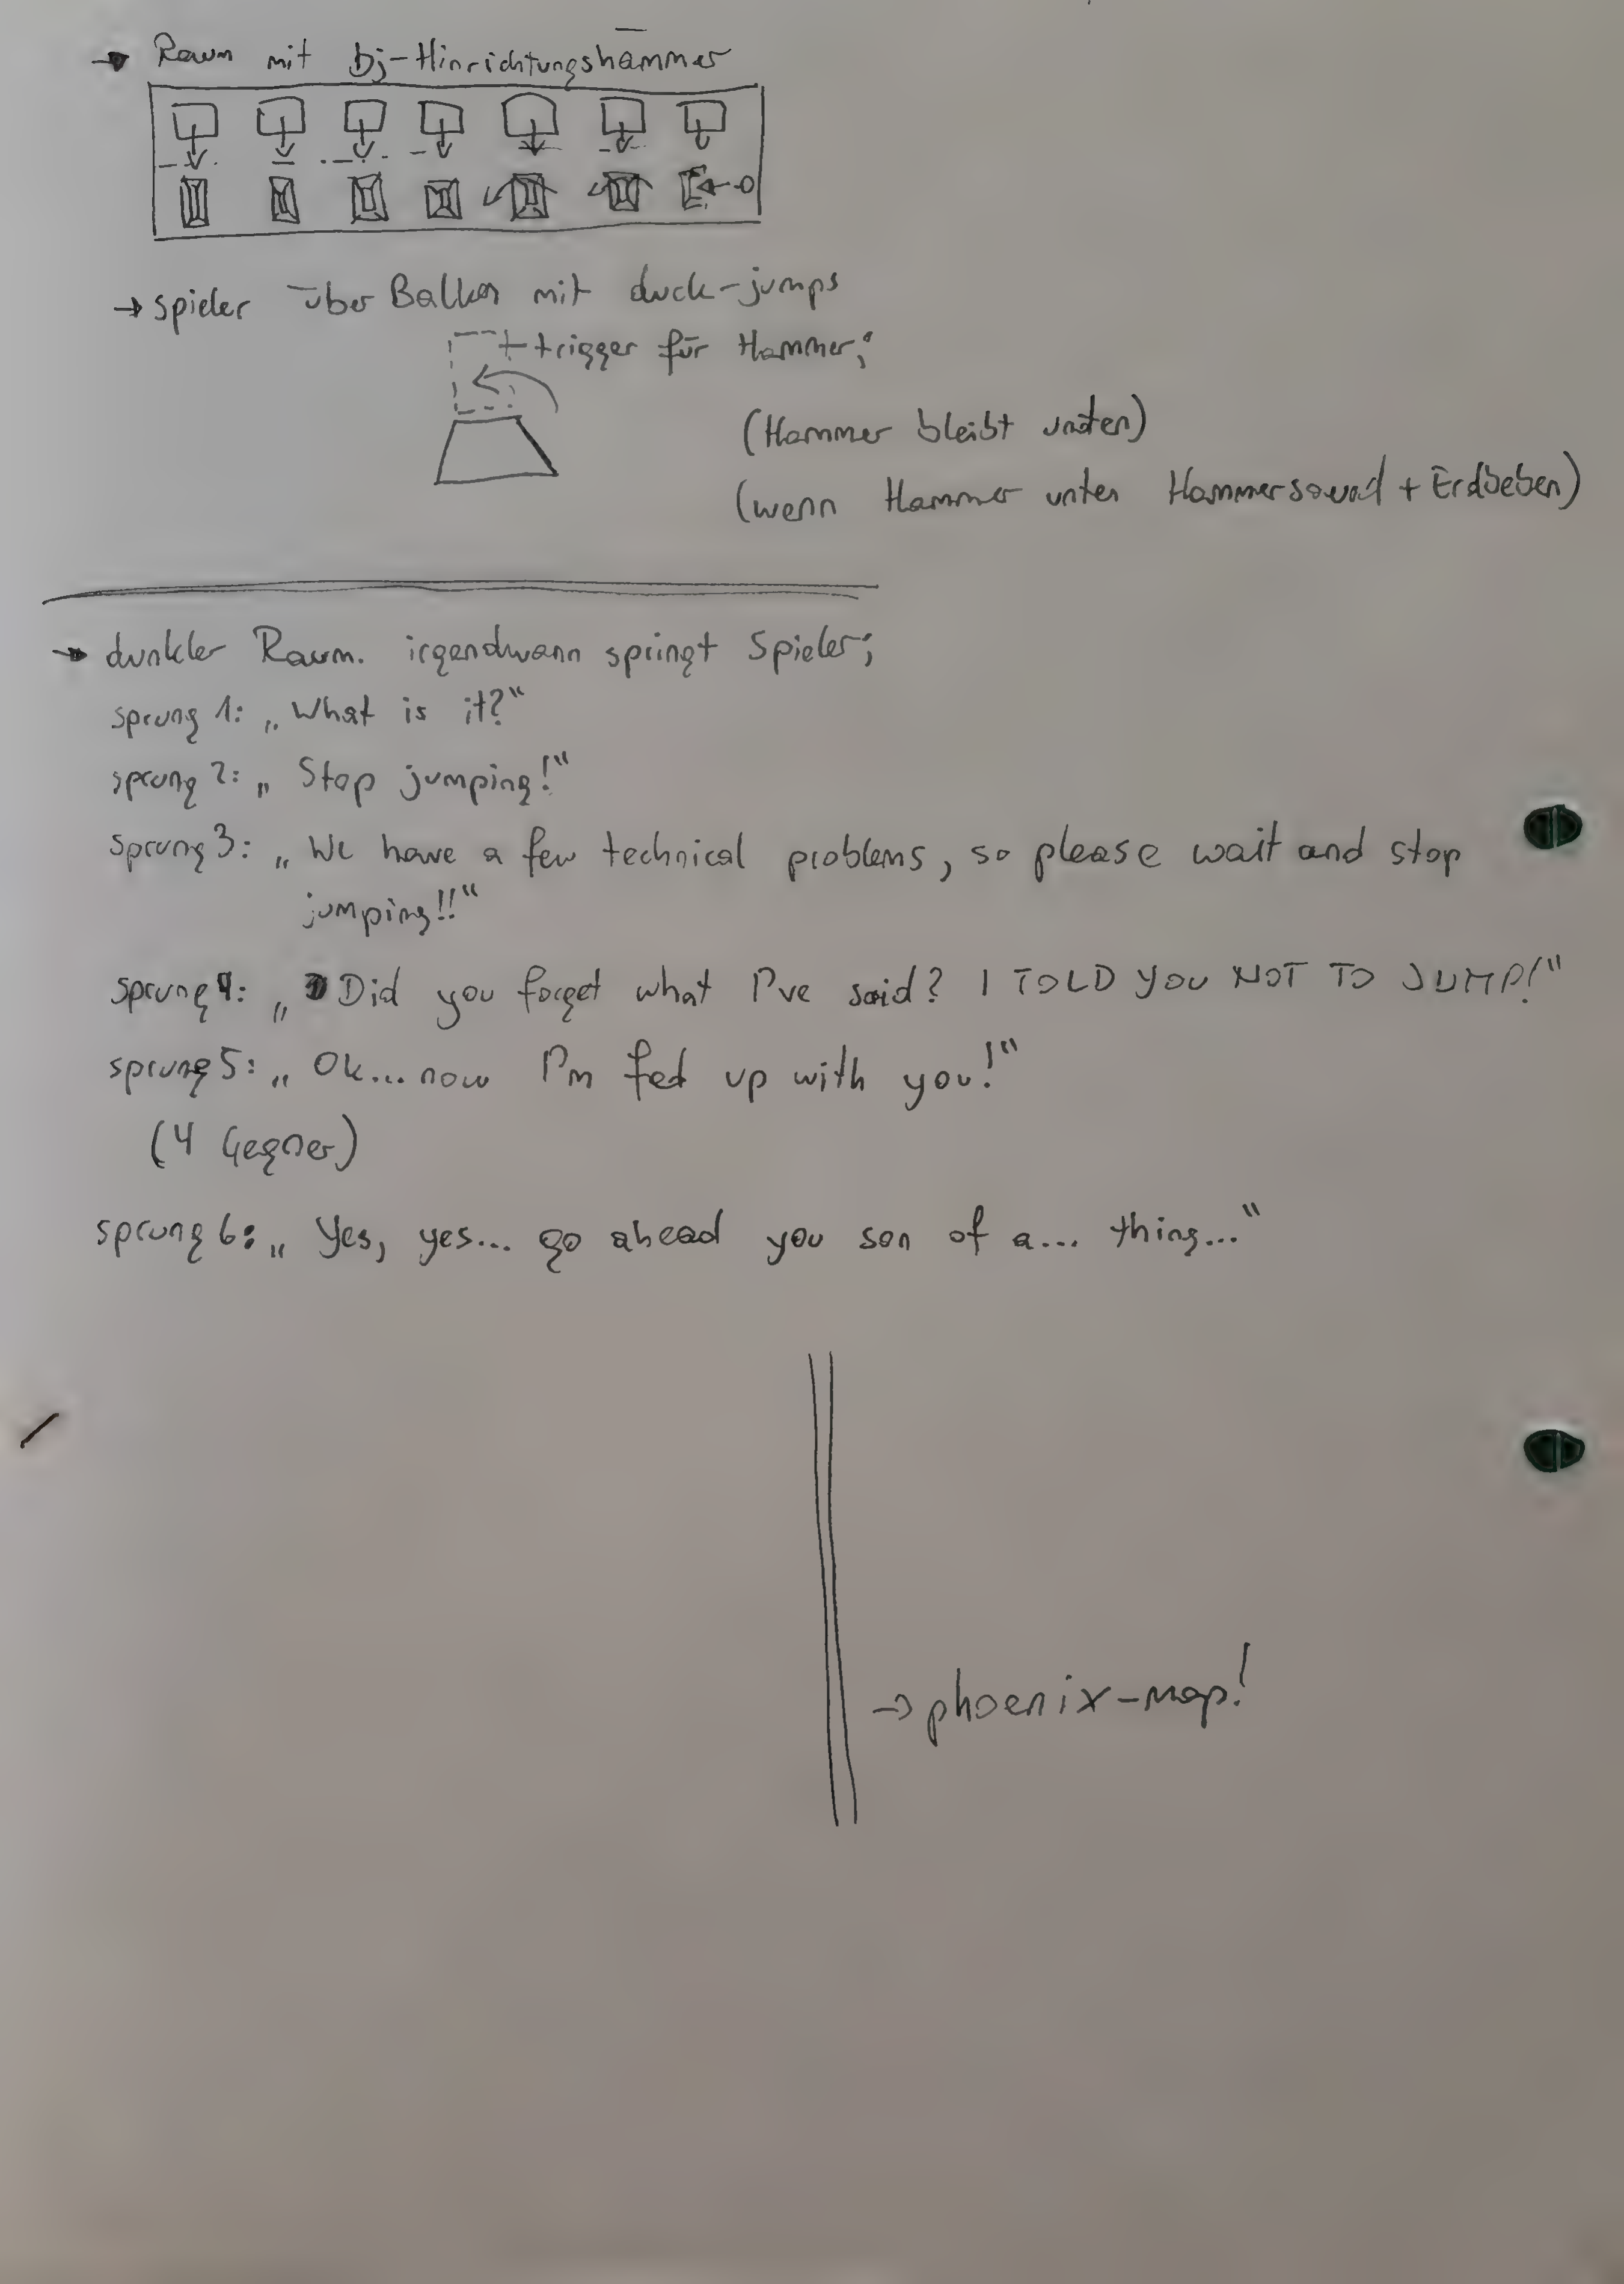 → Raum mit bj-Hinrichtungshämmer
→ spieler über Balken mit duck-jumps
trigger für Hammer;
(Hammer bleibt unten)
(wenn Hammer unten Hammersound + Erdbeben)
→ dunkler Raum. irgendwann springt Spieler;
sprung 1: „What is it?“
sprung 2: „Stop jumping!“
sprung 3: „We have a few technical problems, so please wait and stop
jumping!!“
sprung 4: „Did you forget what I've said? I TOLD YOU NOT TO JUMP!“
sprung 5: „Ok... now I'm fed up with you!“
(4 Gegner)
sprung 6: „Yes, yes... go ahead you son of a... thing...“
→ phoenix-map!